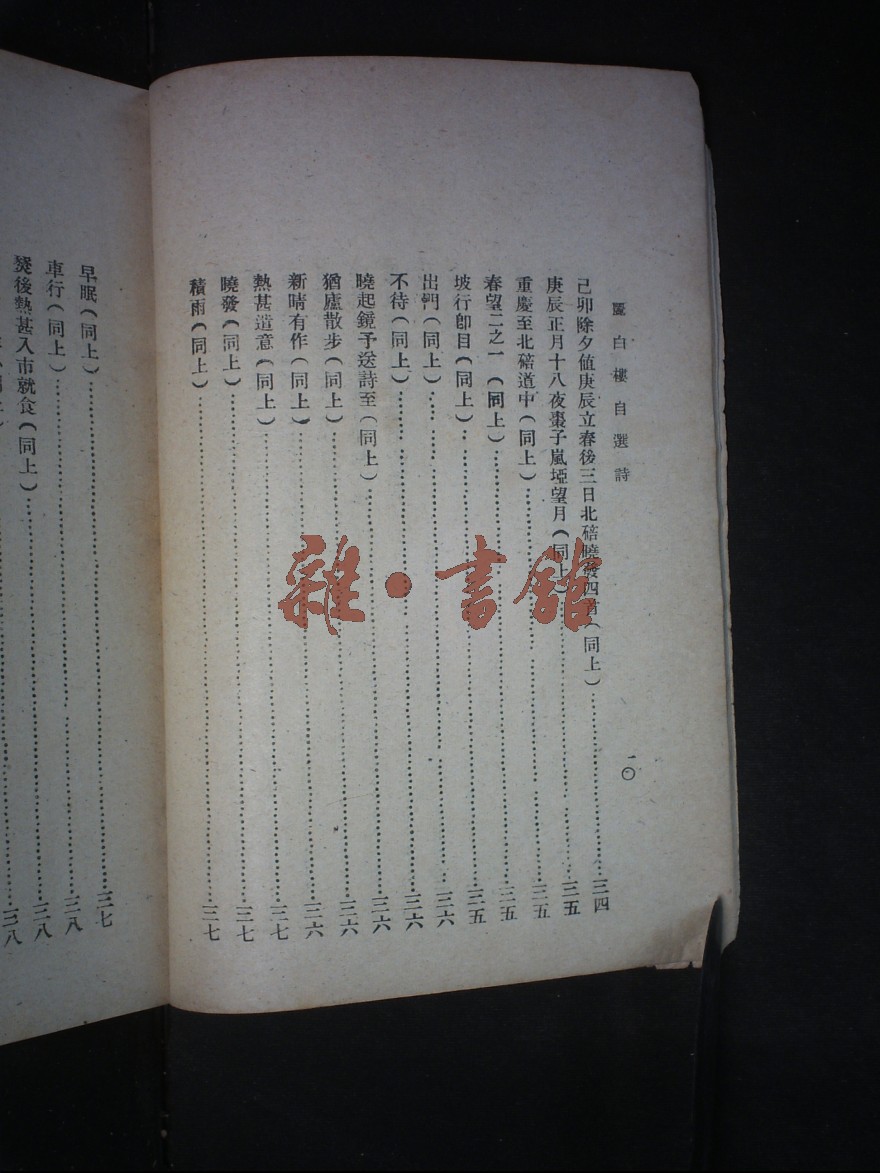 匿白樓自選詩
一〇
己卯除夕値庚辰立春後三日北碚曉發四首(同上)……三四
庚辰正月十八夜棗子嵐埡望月(同上)……三五
重慶至北碚道中(同上)……三五
春望二之一(同上)……三五
坡行卽目(同上)……三五
出門(同上)……三六
不待(同上)……三六
曉起鏡予送詩至(同上)……三六
猶廬散步(同上)……三六
新晴有作(同上)……三六
熱甚造意(同上)……三七
曉發(同上)……三七
積雨(同上)……三七
早眠(同上)……三七
車行(同上)……三八
燹後熱甚入市就食(同上)……三八
三八
雜·書館